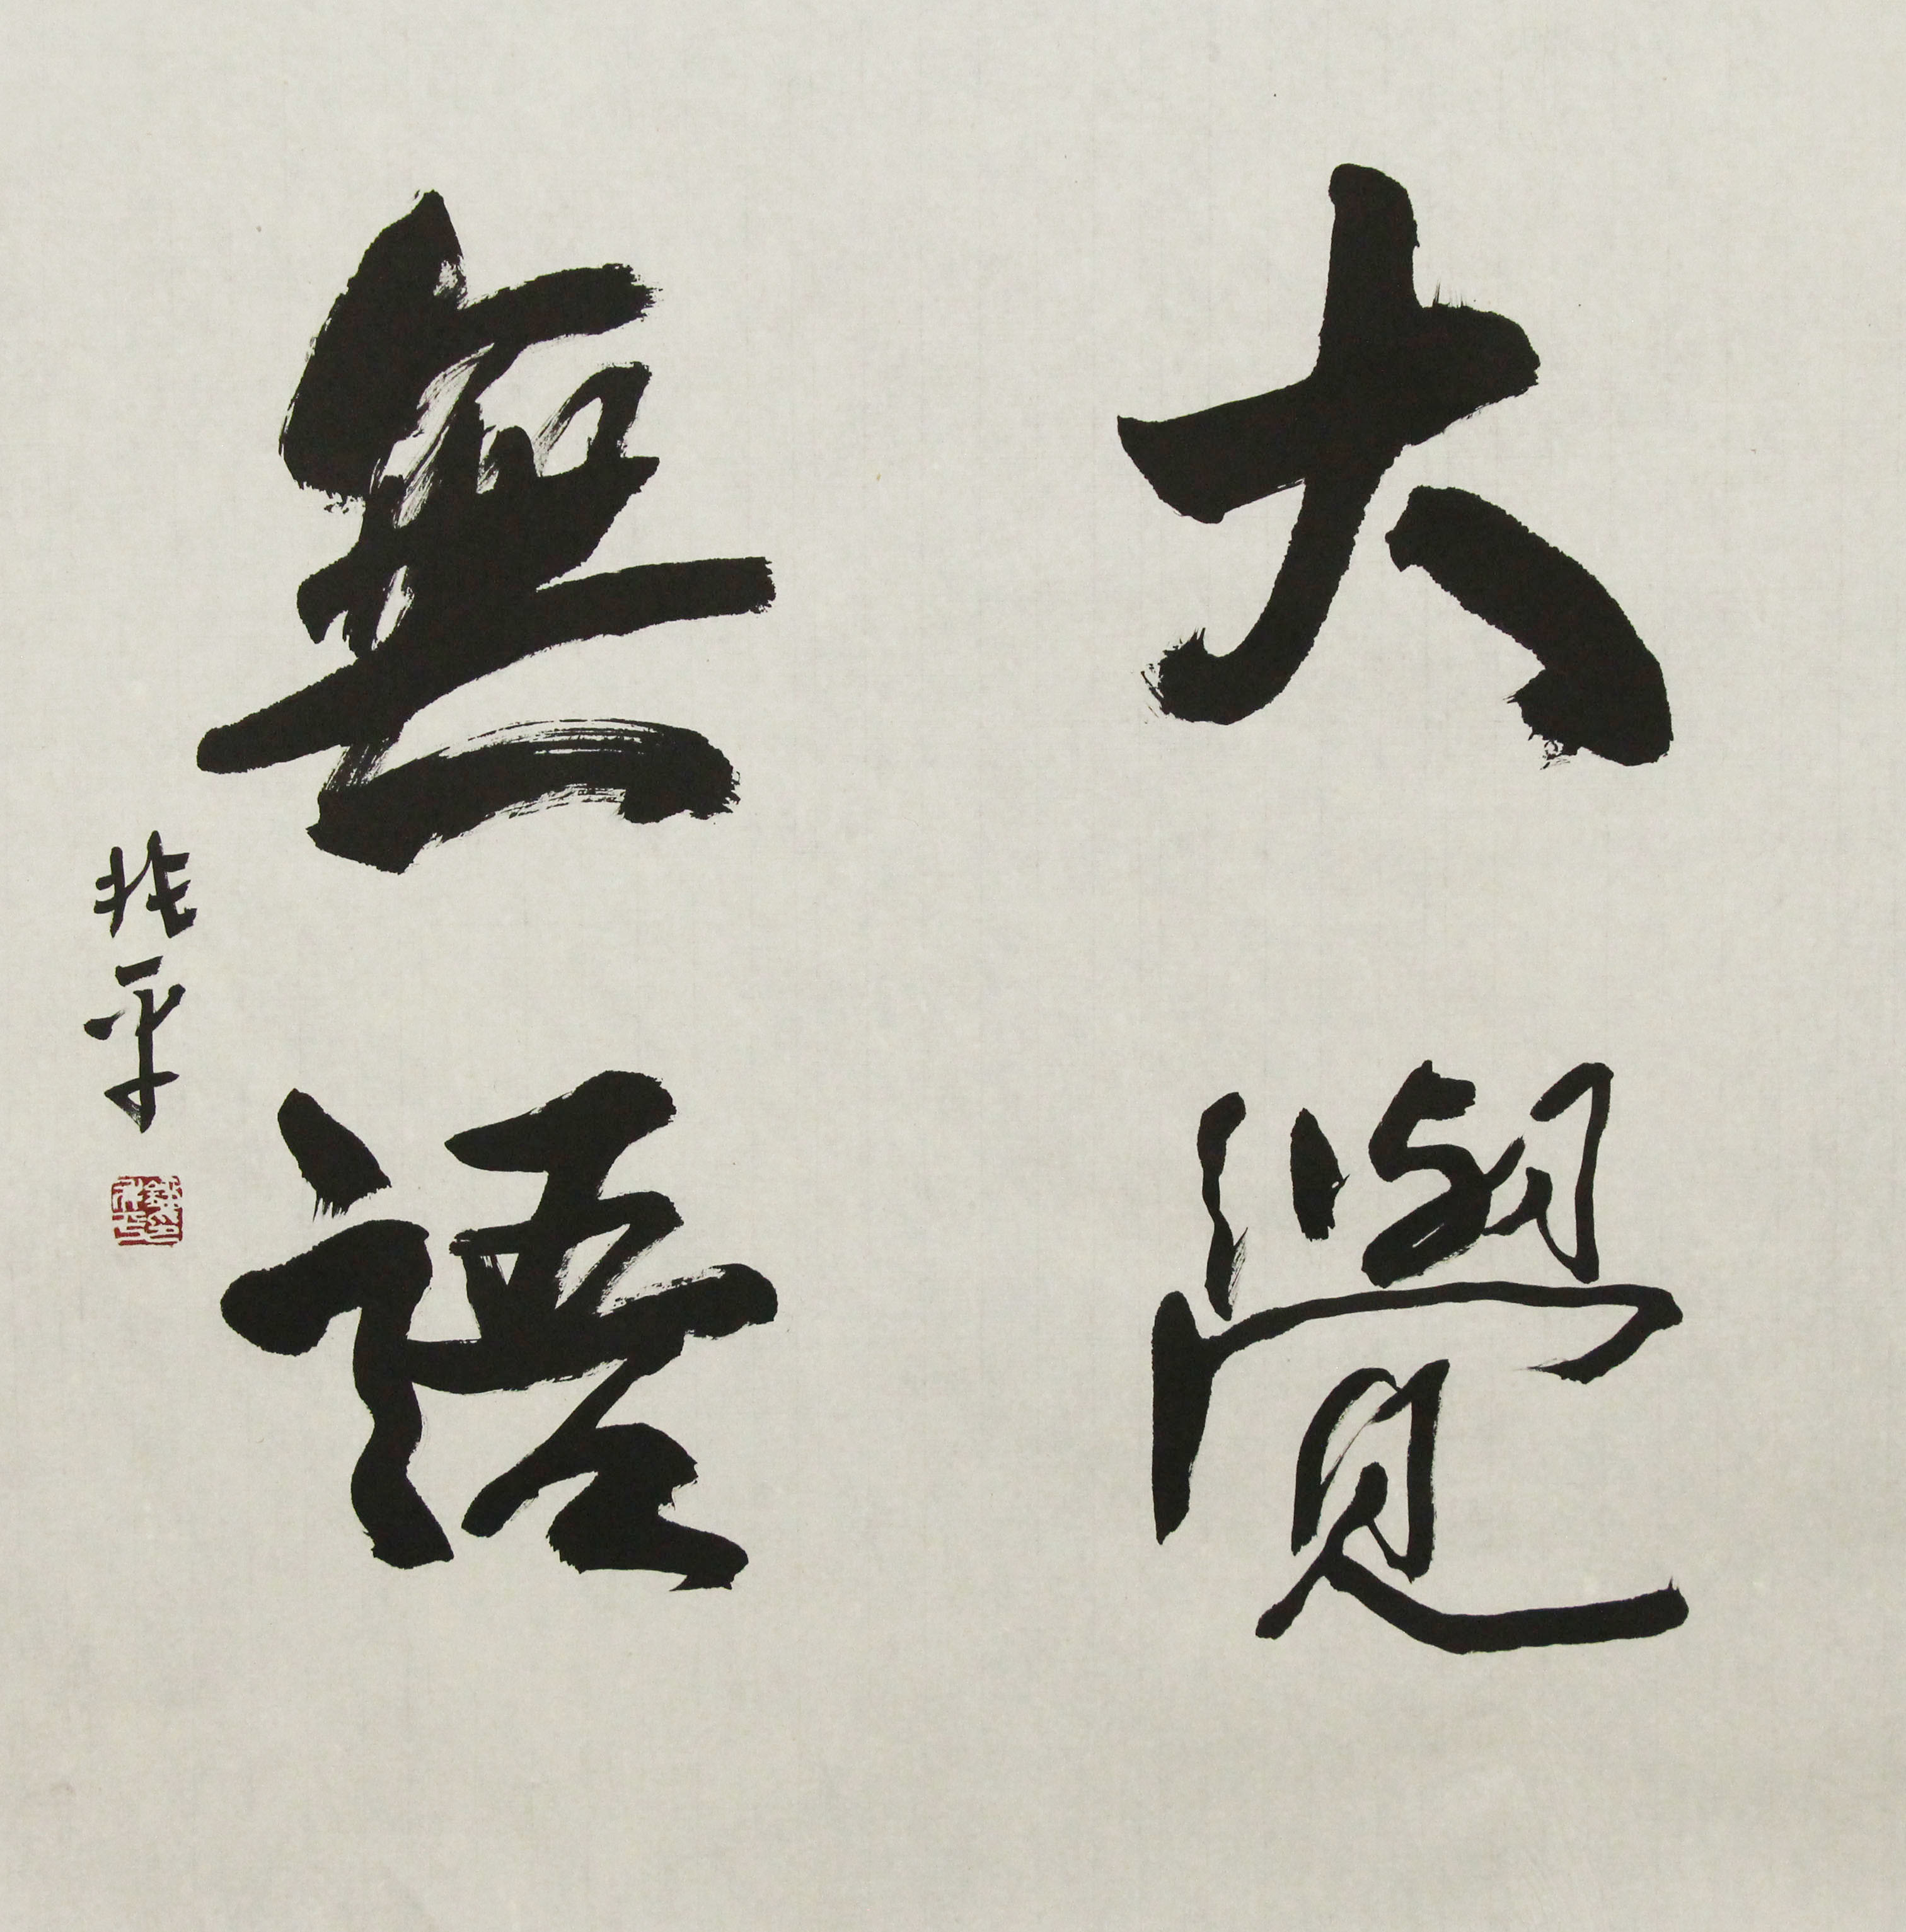 大覺
無語
兆平